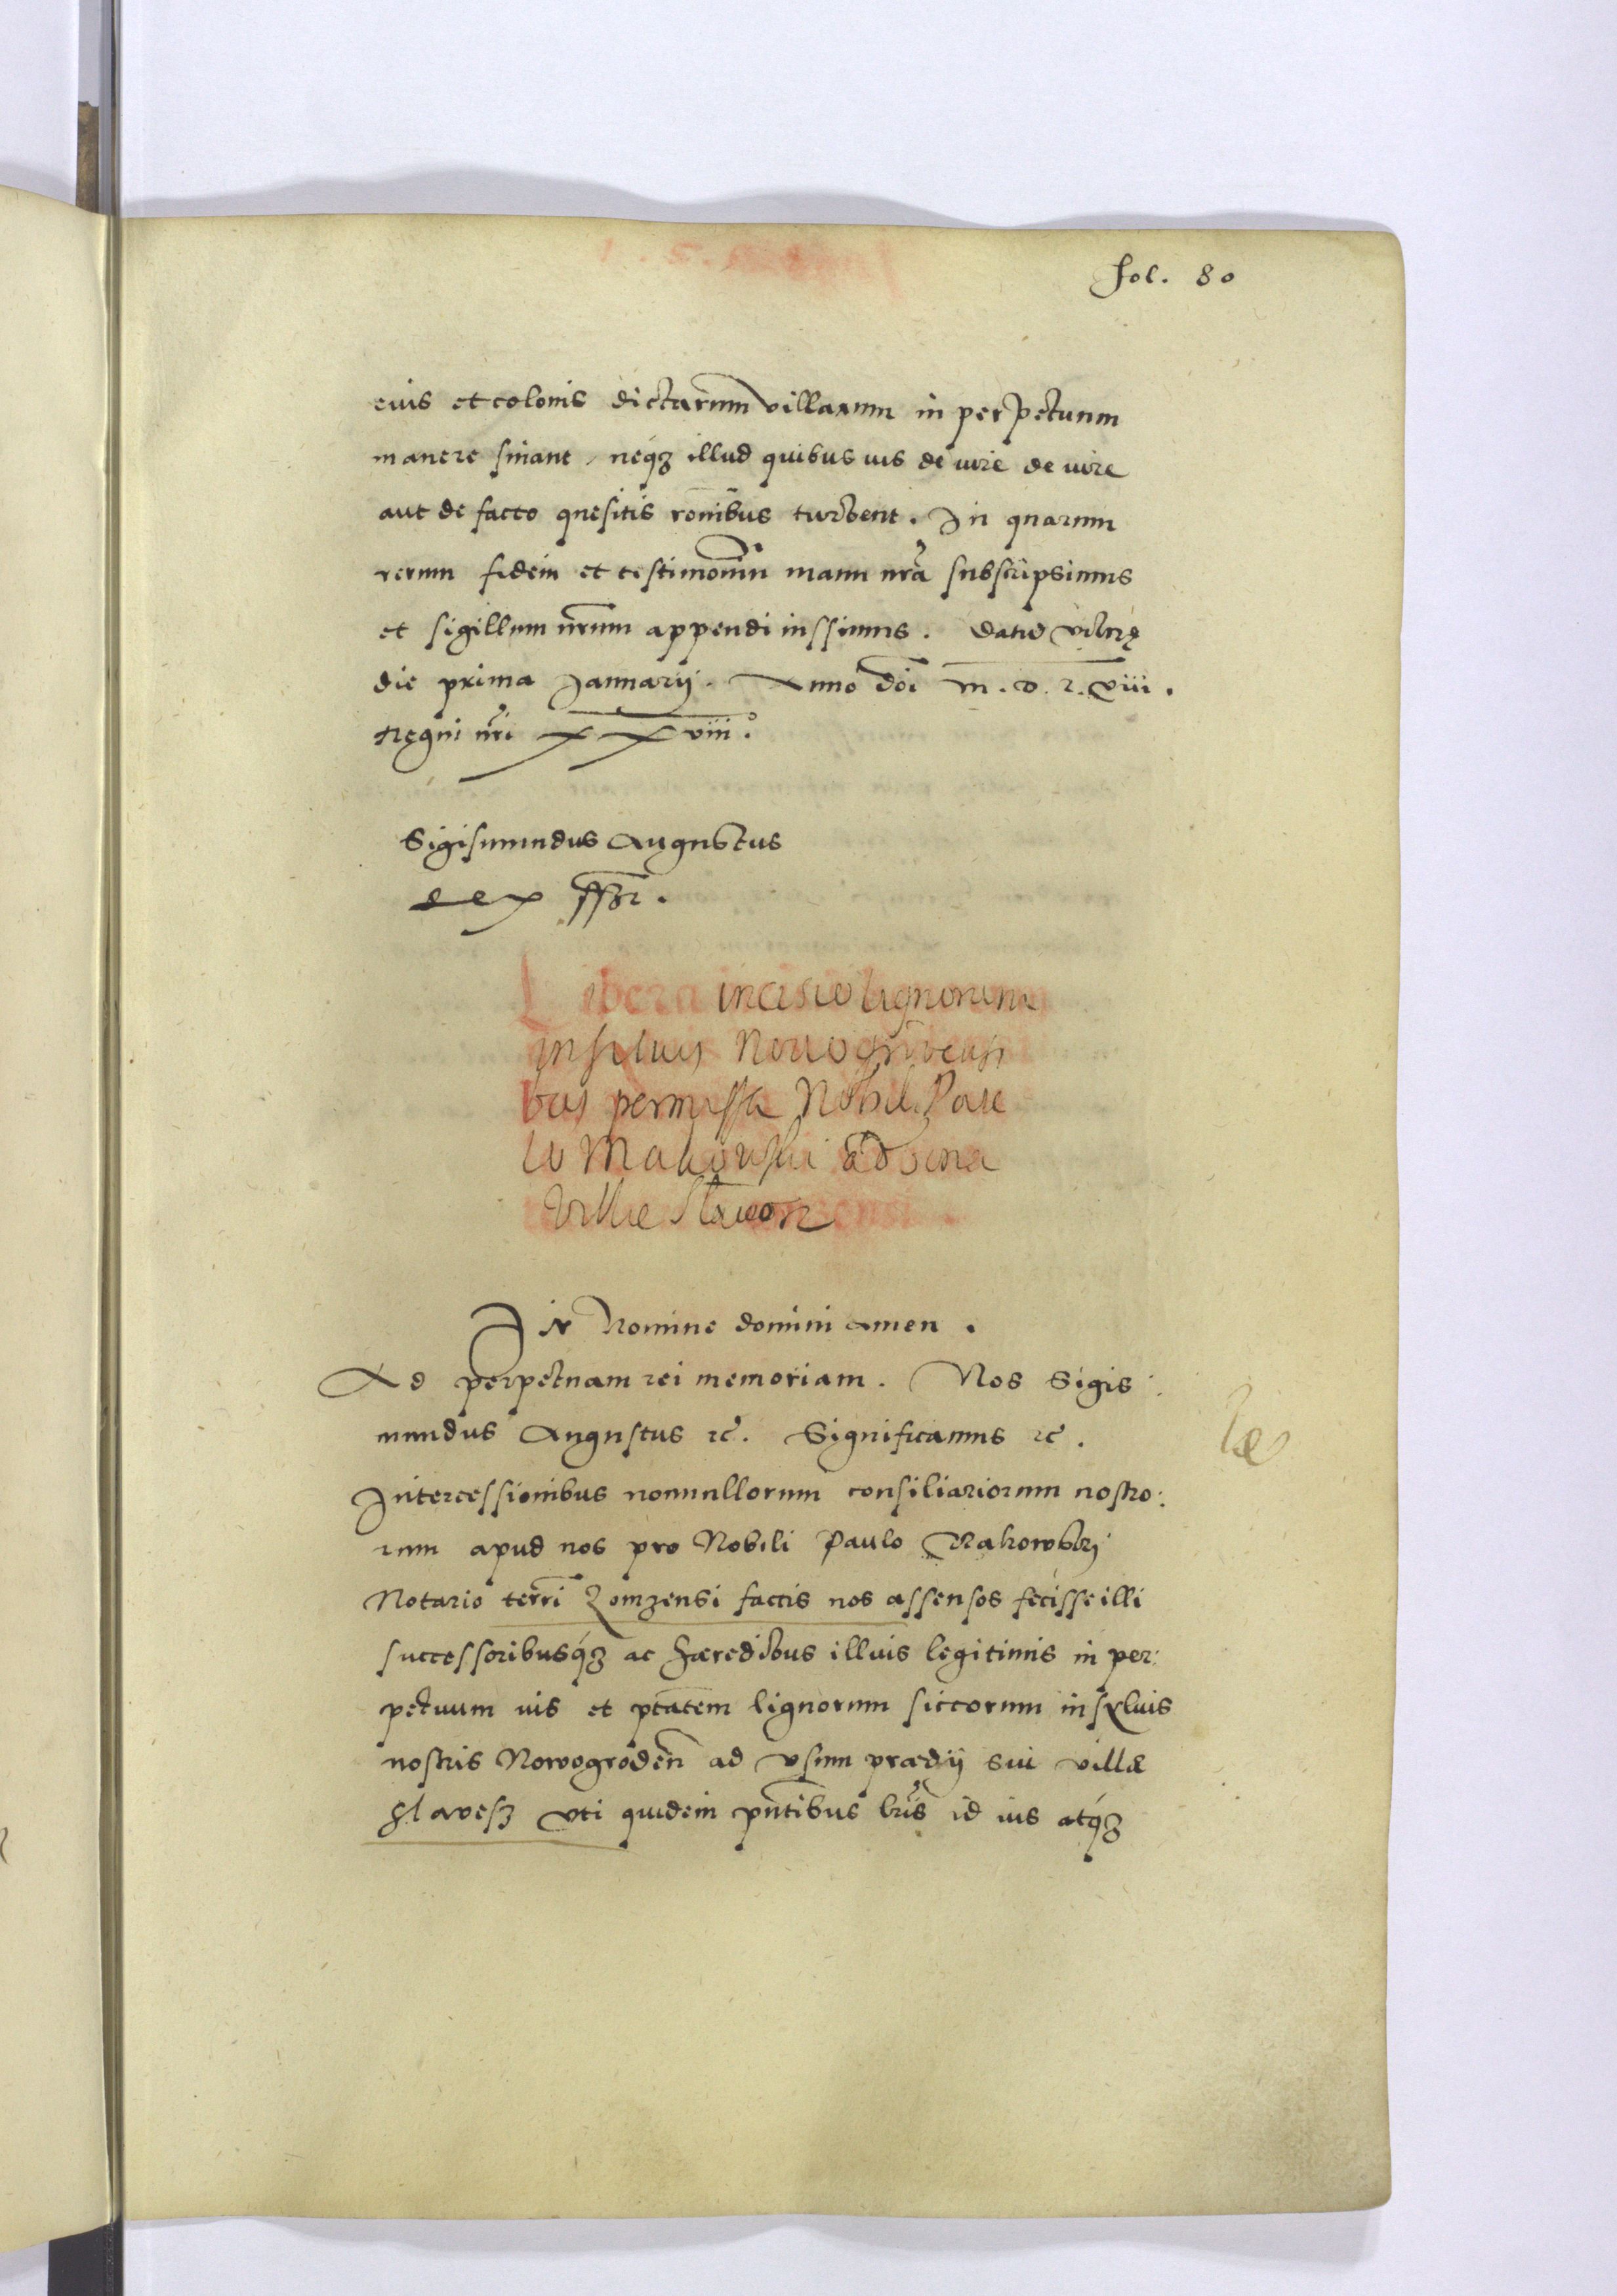 fol. 80
eius et colonis dictarum villarum in perpetuum
manere sinant, neq₃ illud quibus vis de iure de iure
aut de facto quesitis ronibus turbent. In quarum
rerum fidem et testimoniu manu nra subscripsimus
et sigillum nrum appendi iussimus. Datu Vilnę
die prima Januarij. Anno doi M. D. L. VIII.
Regni nri XXVIII.
Sigismundus Augustus
Rex sspt.
Libera incisio lignorum
in siluis Nouogrodensi
bus permissa Nobili Pau
lo Makowski ad
Ville
In Nomine domini amen.
Ad perpetuam rei memoriam. Nos Sigis:
mundus Augustus etc. Significamus etc.
Intercessionibus nonnullorum consiliariorum nostro:
rum apud nos pro Nobili Paulo Makowski
Notario terri Lomzensi factis nos assensos fecisse illi
successoribusq₃ ac hæredibus illius legitimis in per:
petuum ius et ptatem lignorum siccorum in syluis
nostris Nowogroden ad vsum prædij sui villæ
Slavesz vti quidem pntibus lris id ius atq₃